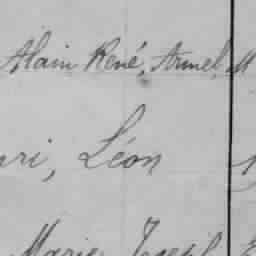 Alain René, Armel M
ri, Léon
Marie Joseph